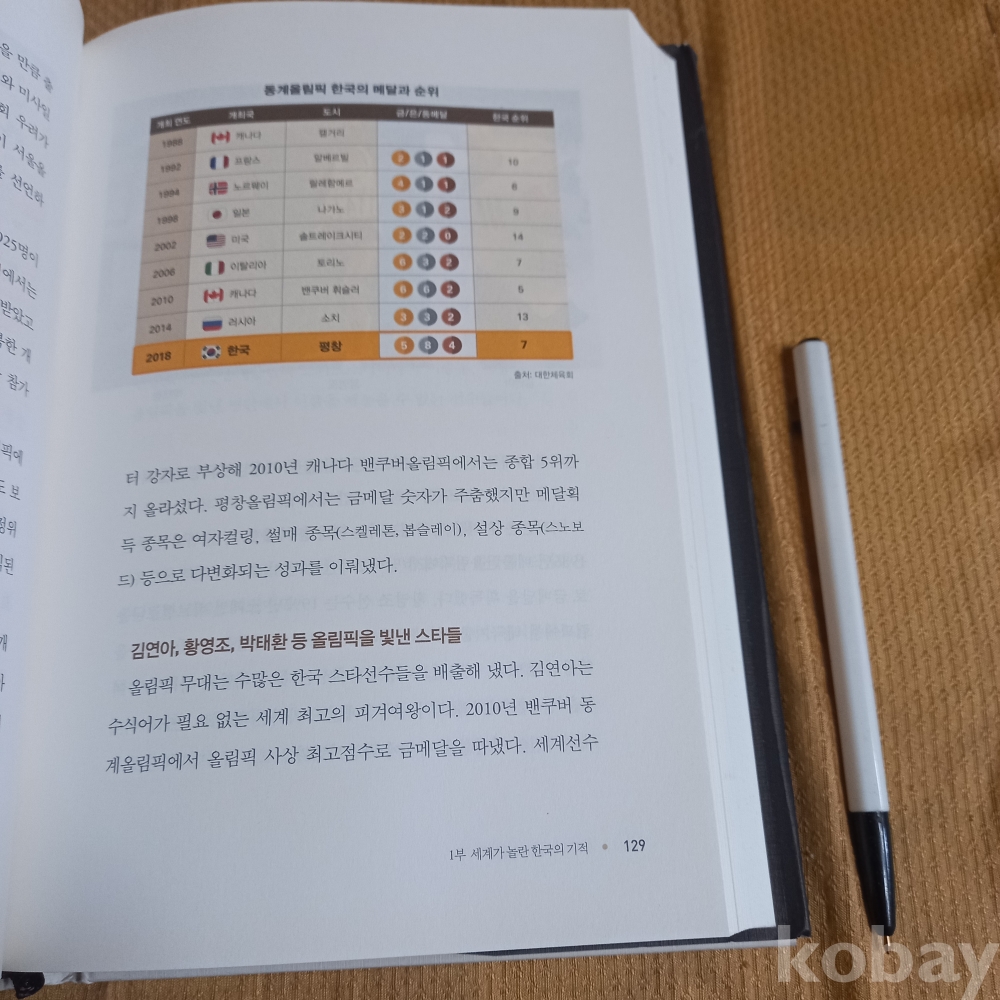 을 만큼 출
와 미사일
회 우리가
이 서울을
을 선언하
925명이
에서는
받았고
복한 개
참가
픽에
도 보
정위
된
개
동계올림픽 한국의 메달과 순위
개최 연도 개최국 도시 금/은/동메달 한국 순위
1988 캐나다 캘거리
1992 프랑스 알베르빌 2 1 1 10
1994 노르웨이 릴레함메르 4 1 1 6
1998 일본 나가노 3 1 2 9
2002 미국 솔트레이크시티 2 2 0 14
2006 이탈리아 토리노 6 3 2 7
2010 캐나다 밴쿠버 휘슬러 6 6 2 5
2014 러시아 소치 3 3 2 13
2018 한국 평창 5 8 4 7
출처: 대한체육회
터 강자로 부상해 2010년 캐나다 밴쿠버올림픽에서는 종합 5위까
지 올라섰다. 평창올림픽에서는 금메달 숫자가 주춤했지만 메달획
득 종목은 여자컬링, 썰매 종목(스켈레톤, 봅슬레이), 설상 종목(스노보
드) 등으로 다변화되는 성과를 이뤄냈다.
김연아, 황영조, 박태환 등 올림픽을 빛낸 스타들
올림픽 무대는 수많은 한국 스타선수들을 배출해 냈다. 김연아는
수식어가 필요 없는 세계 최고의 피겨여왕이다. 2010년 밴쿠버 동
계올림픽에서 올림픽 사상 최고점수로 금메달을 따냈다. 세계선수
1부 세계가 놀란 한국의 기적 • 129
kobay